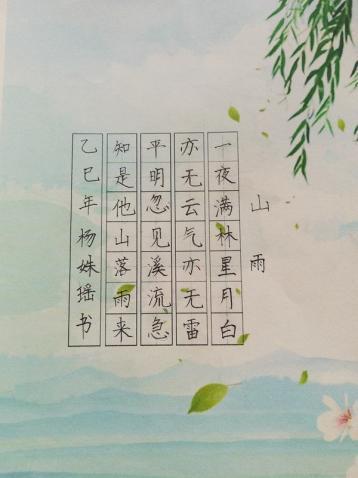 山雨
一夜满林星月白
亦无云气亦无雷
平明忽见溪流急
知是他山落雨来
乙巳年杨姝瑶书